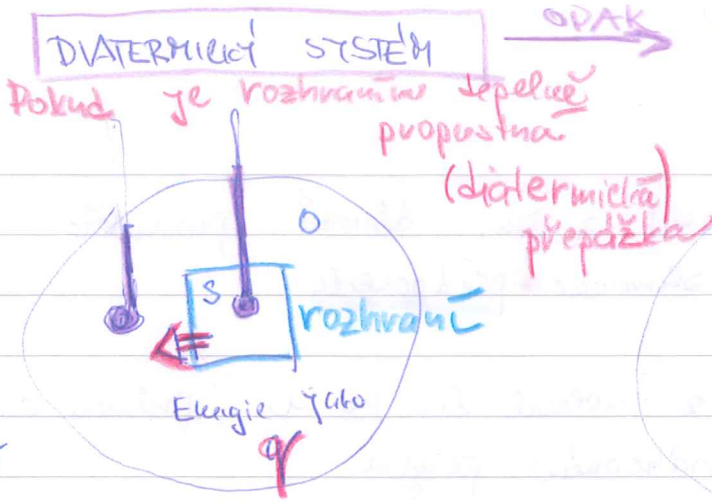 DIATERMICKÝ SYSTÉM
OPAK
Pokud je rozhraním tepelně
propustná
(diatermická)
přepážka
O
S
rozhraní
Energie jako
q